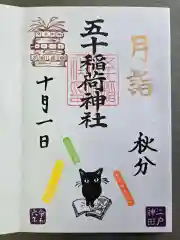 月詣
五十稲荷神社
秋分
十月一日
神田